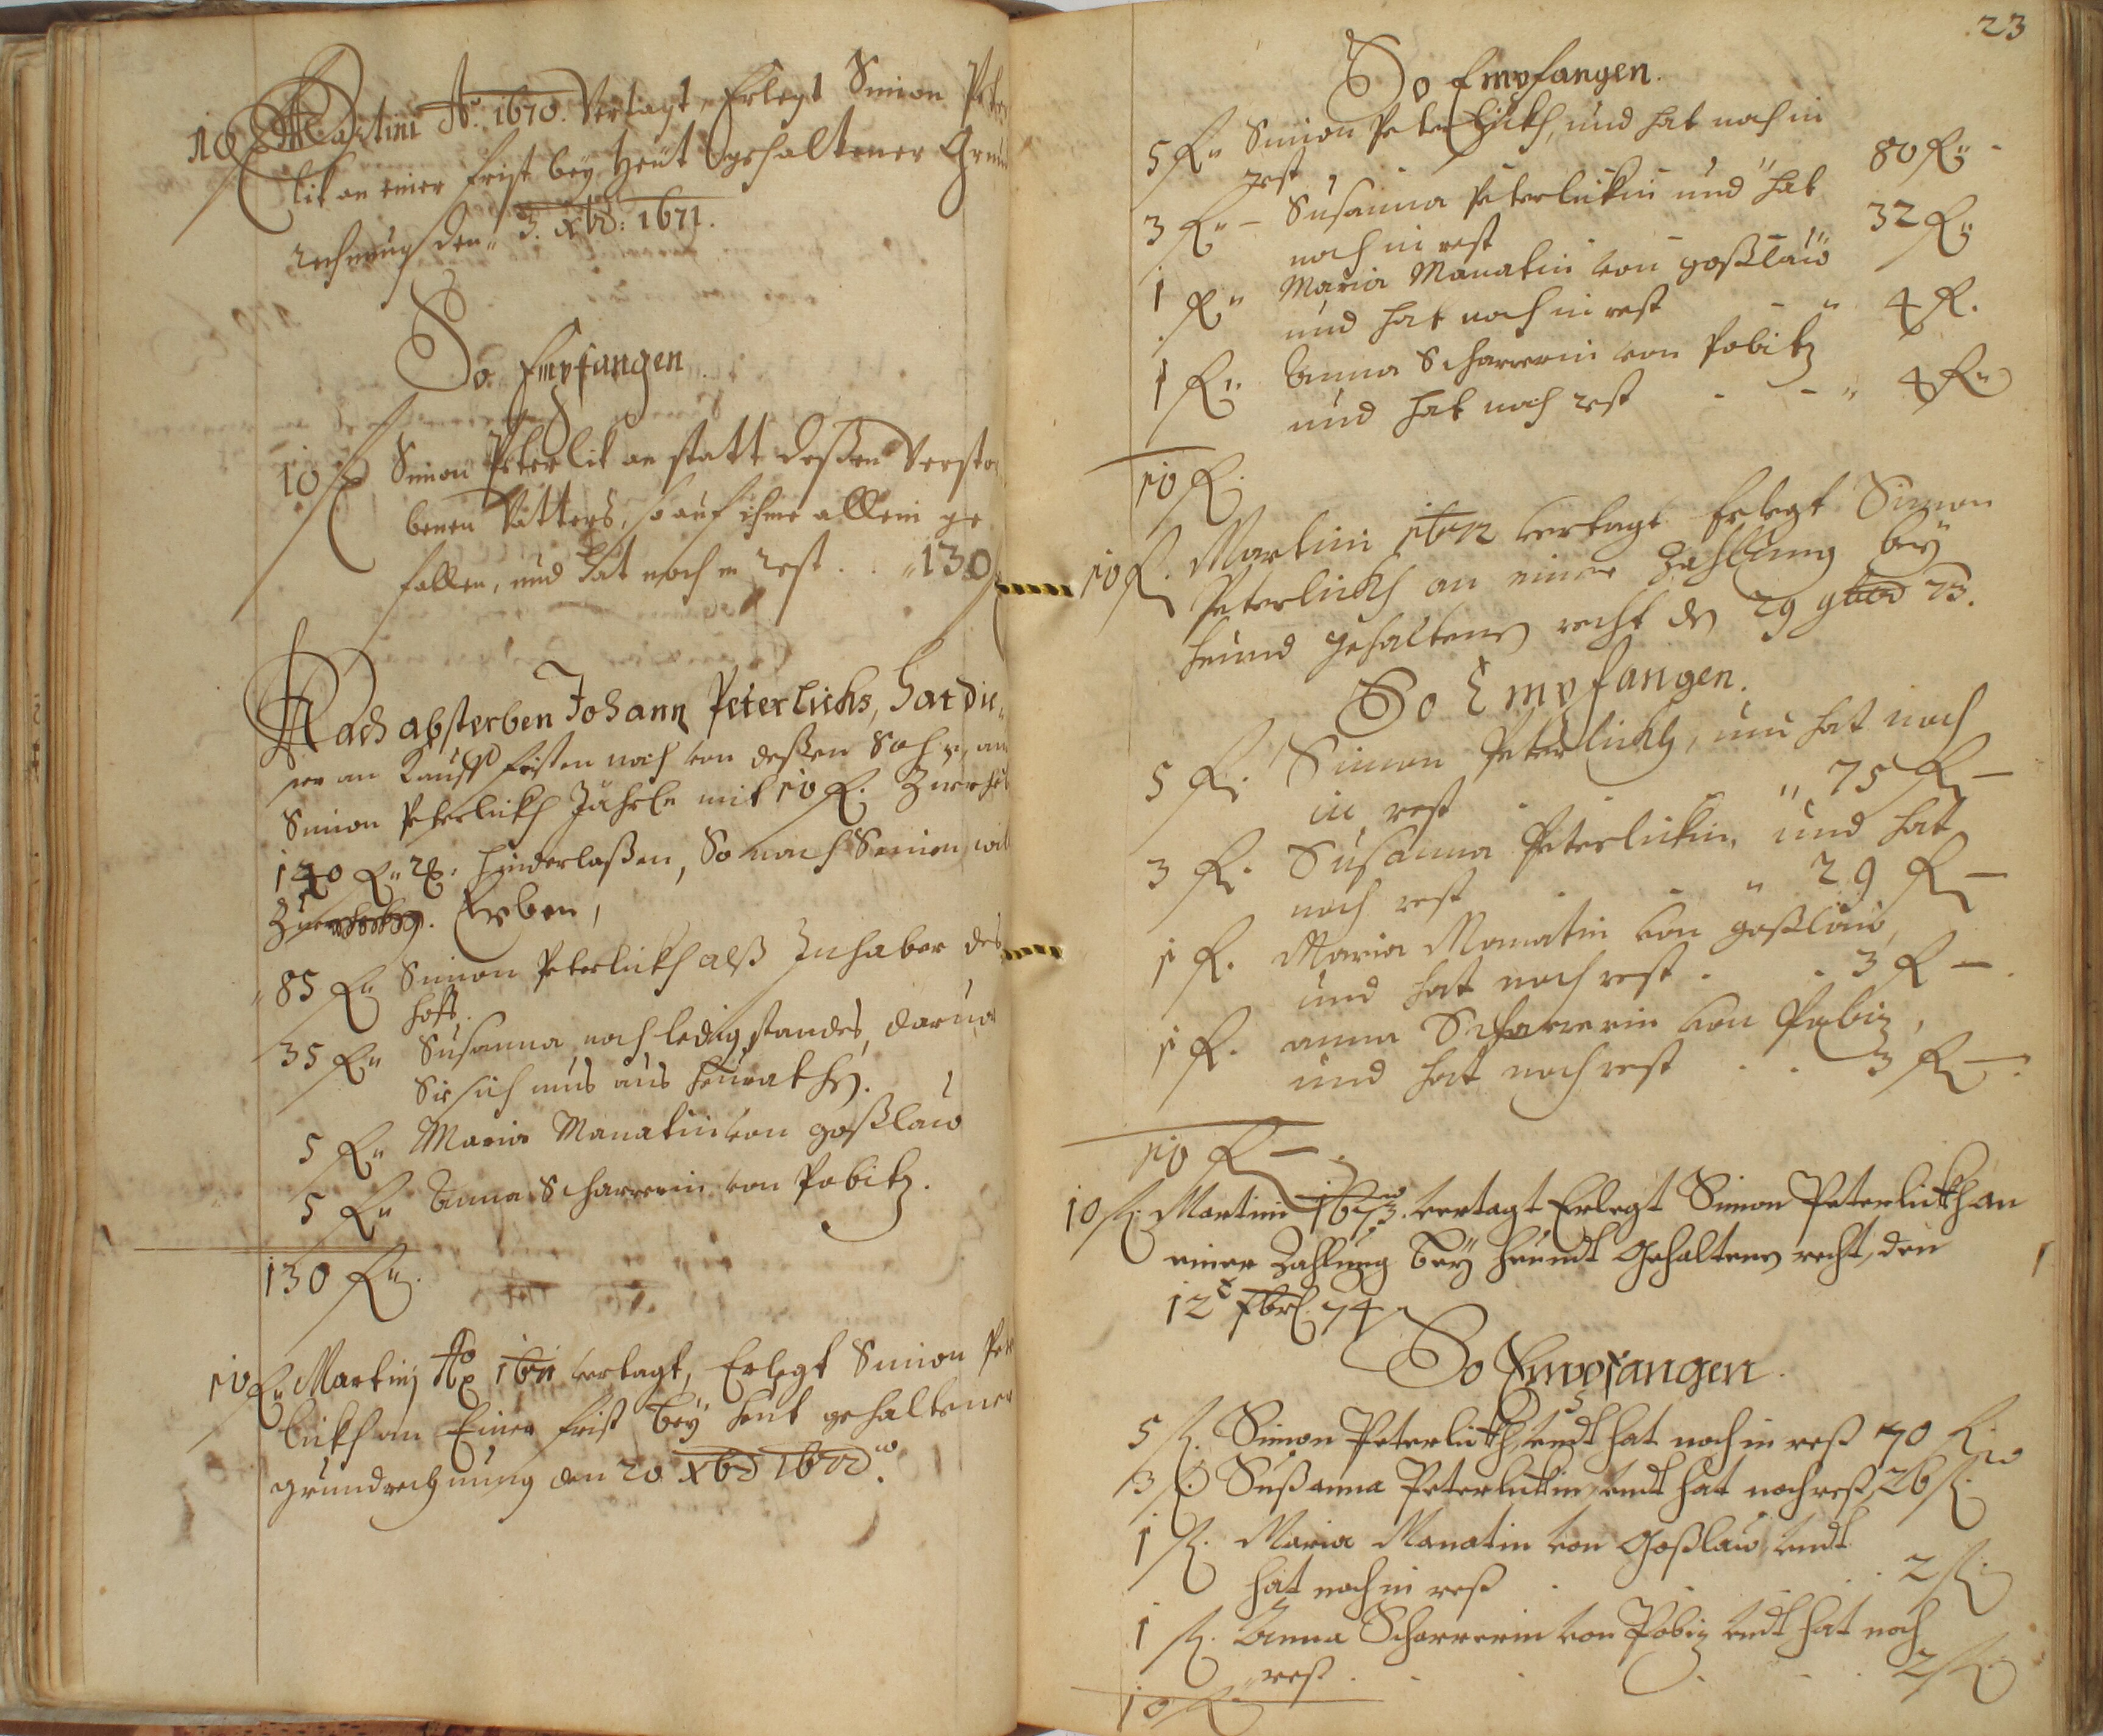 10 f Martini Aō. 1670. Vertagt, Erlegt Simon Peter
lik an einer frist bey heut gehaltener Grund
rechnung den 3. xbr: 1671.
So Empfangen.
10 f Simon Peterlik an statt deßen Verstor
benen Vatters, so auf ihme allein ge
fallen, und hat noch in Rest . . 130
Nach absterben Johann Peterlichs, hat die-
ser an Kauff fristen noch von deßen Sohn, an
Simon Peterlickh Jahrln mit 10 f.
140 f hinderlaßen, So nach Seinen
Erben,
85 f Simon Peterlickh alß Inhaber des
hoffs.
35 f Susanna, noch ledig standes,
Sie sich aus heürathen.
5 f Maria Manatin von goßlaw
5 f Anna Scharrerin von Pobitz.
130 f.
10 f Martini Aō 1671 vertagt, Erlegt Simon Peter
lickh an Einer frist bey heut gehaltener
grundrechnung den 20 xbr 1672.
23
So Empfangen.
5 f Simon Peterlickh, und hat noch in
rest 80 f
3 f Susanna Peterlickin und hat
noch in rest 32 f
1 f Maria Manatin von goßlaw
und hat noch in rest 4 f.
1 f Anna Scharrerin von Pobitz
und hat noch rest 4 f
10 f.
10 f. Martini 1672 vertagt Erlegt Simon
Peterlickh an einer Zahlung bey
heund gehaltenen recht den 29 9ber 73.
So Empfangen.
5 f. Simon Peterlickh, und hat noch
in rest 75 f
3 f. Susanna Peterlickin, und hat
noch rest 29 f
1 f. Maria Manatin von goßlaw,
und hat noch rest . . 3 f
1 f. anna Scharrerin von Pobiz,
und hat noch rest . . 3 f
10 f
10 f. Martini 1673. vertagt Erlegt Simon Peterlickh an
einer Zahlung bey heundt Gehaltenen recht, den
12t Fbr. 74
So Empfangen.
5 f. Simon Peterlickh, undt hat noch in rest 70 f
3 f. Sußanna Peterlickin, undt hat noch rest 26 f.
1 f. Maria Manatin von Goßlaw, undt
hat noch in rest . . 2 f.
1 f. Anna Scharrerin von Pobiz undt hat noch
rest . . . 2 f.
10 f.